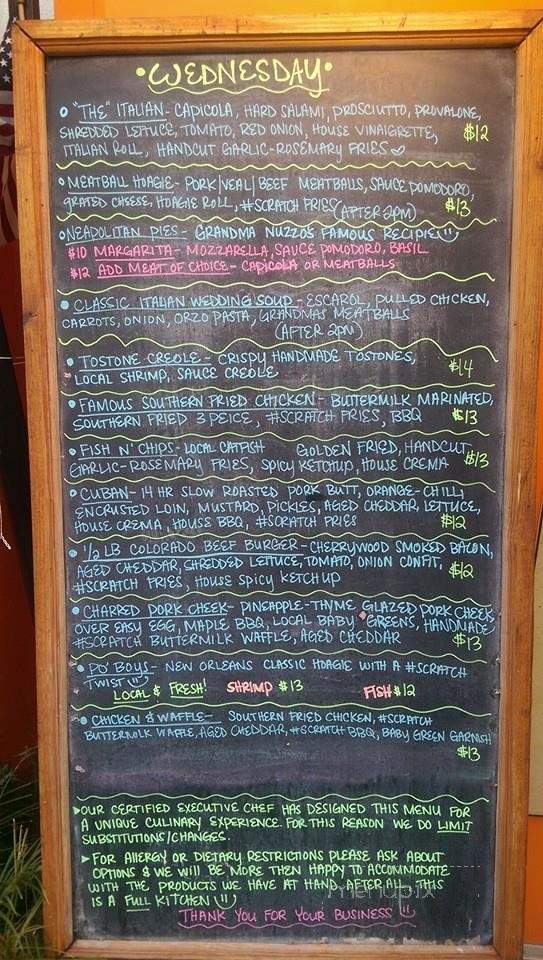 •WEDNESDAY•
• "THE" ITALIAN- CAPICOLA, HARD SALAMI, PROSCIUTTO, PROVALONE,
SHREDDED LETTUCE, TOMATO, RED ONION, HOUSE VINAIGRETTE, $12
ITALIAN ROLL, HANDCUT GARLIC-ROSEMARY FRIES ♡
• MEATBALL HOAGIE- PORK/VEAL/BEEF MEATBALLS, SAUCE POMODORO,
GRATED CHEESE, HOAGIE ROLL, #SCRATCH FRIES (AFTER 2PM) $13
• NEAPOLITAN PIES- GRANDMA NUZZO'S FAMOUS RECIPIE
$10 MARGARITA- MOZZARELLA, SAUCE POMODORO, BASIL
$12 ADD MEAT OF CHOICE- CAPICOLA OR MEATBALLS
• CLASSIC ITALIAN WEDDING SOUP- ESCAROL, PULLED CHICKEN,
CARROTS, ONION, ORZO PASTA, GRANDMAS MEATBALLS
(AFTER 2PM)
• TOSTONE CREOLE- CRISPY HANDMADE TOSTONES, $14
LOCAL SHRIMP, SAUCE CREOLE
• FAMOUS SOUTHERN FRIED CHICKEN- BUTTERMILK MARINATED,
SOUTHERN FRIED 3 PEICE, #SCRATCH FRIES, BBQ $13
• FISH N' CHIPS- LOCAL CATFISH GOLDEN FRIED, HANDCUT
GARLIC-ROSEMARY FRIES, SPICY KETCHUP, HOUSE CREMA $13
• CUBAN- 14 HR SLOW ROASTED PORK BUTT, ORANGE-CHILI
ENCRUSTED LOIN, MUSTARD, PICKLES, AGED CHEDDAR, LETTUCE,
HOUSE CREMA, HOUSS BBQ, #SCRATCH FRIES $12
• 1/2 LB COLORADO BEEF BURGER- CHERRYWOOD SMOKED BACON,
AGED CHEDDAR, SHREDDED LETTUCE, TOMATO, ONION CONFIT, $12
#SCRATCH FRIES, HOUSE SPICY KETCHUP
• CHARRED PORK CHEEK- PINEAPPLE-THYME GLAZED PORK CHEEK
OVER EASY EGG, MAPLE BBQ, LOCAL BABY GREENS, HANDMADE
#SCRATCH BUTTERMILK WAFFLE, AGED CHEDDAR $13
• PO' BOYS- NEW ORLEANS CLASSIC HOAGIE WITH A #SCRATCH
TWIST
LOCAL & FRESH! SHRIMP $13 FISH $12
• CHICKEN & WAFFLE- SOUTHERN FRIED CHICKEN, #SCRATCH
BUTTERMILK WAFFLE, AGED CHEDDAR, #SCRATCH BBQ, BABY GREEN GARNISH
$13
▸OUR CERTIFIED EXECUTIVE CHEF HAS DESIGNED THIS MENU FOR
A UNIQUE CULINARY EXPERIENCE. FOR THIS REASON WE DO LIMIT
SUBSTITUTIONS/CHANGES.
▸FOR ALLERGY OR DIETARY RESTRICTIONS PLEASE ASK ABOUT
OPTIONS & WE WILL BE MORE THEN HAPPY TO ACCOMMODATE
WITH THE PRODUCTS WE HAVE AT HAND, AFTER ALL, THIS
IS A FULL KITCHEN
menupix
THANK YOU FOR YOUR BUSINESS